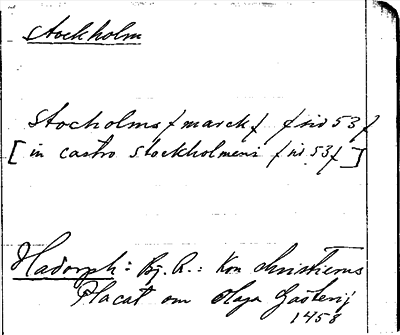 Stockholm
Stocholms / marck / / sid 53 /
[ in castro Stockholmensi / sid. 53 / ]
Hadorph: Bj. R.: Kon Christierns
Placat om Olaga Gästerij
1458